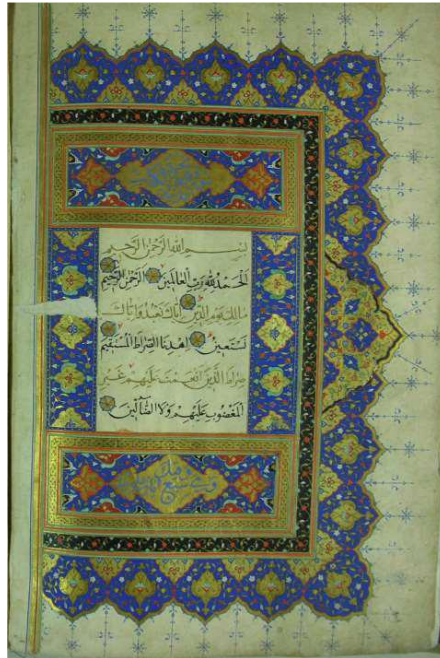 بِسْمِ اللهِ الرَّحْمٰنِ الرَّحِيمِ
اَلْحَمْدُ لِلّٰهِ رَبِّ الْعَالَمِينَ الرَّحْمٰنِ الرَّحِيمِ
مَالِكِ يَوْمِ الدِّينِ اِيَّاكَ نَعْبُدُ وَاِيَّاكَ
نَسْتَعِينُ اِهْدِنَا الصِّرَاطَ الْمُسْتَقِيمَ
صِرَاطَ الَّذِينَ اَنْعَمْتَ عَلَيْهِمْ غَيْرِ
الْمَغْضُوبِ عَلَيْهِمْ وَلَا الضَّالِّينَ
وهي سبع